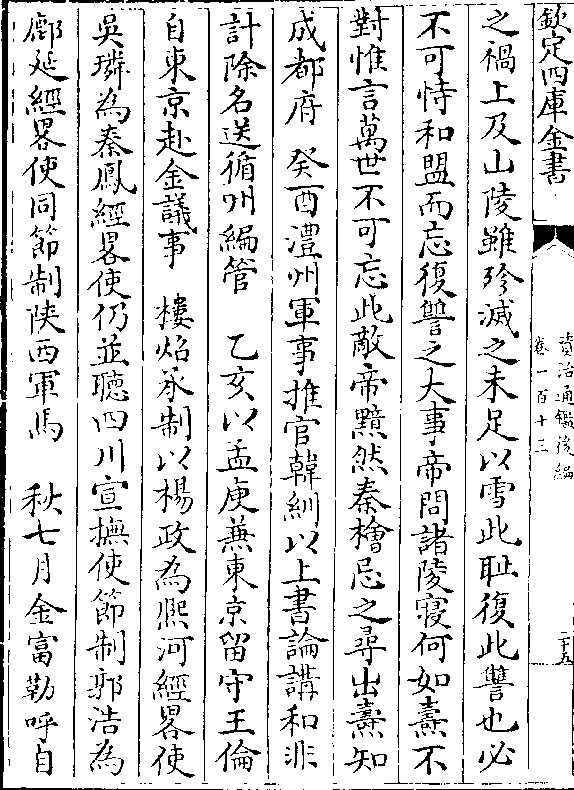 欽定四庫全書
資治通鑑後編
卷一百十三
二十五
之禍上及山陵雖殄滅之未足以雪此恥復此讐也必
不可恃和盟而忘復讐之大事帝問諸陵寢何如燾不
對惟言萬世不可忘此敵帝黯然秦檜忌之尋出燾知
成都府 癸酉澧州軍事推官韓紃以上書論講和非
計除名送循州編管 乙亥以孟庾兼東京留守王倫
自東京赴金議事 樓炤承制以楊政為熙河經畧使
吳璘為秦鳳經畧使仍並聽四川宣撫使節制郭浩為
鄜延經畧使同節制陜西軍馬 秋七月金富勒呼自